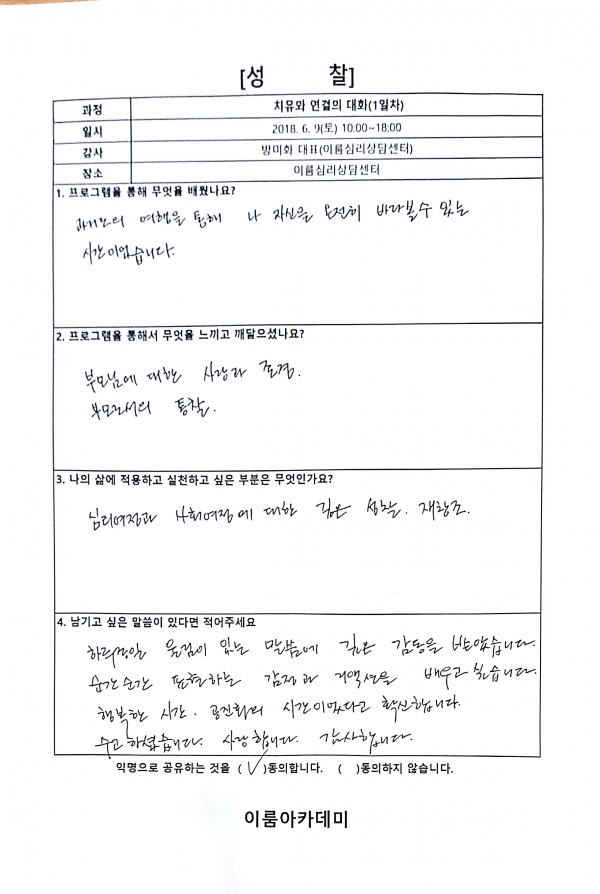 [성 찰]
과정 치유와 연결의 대화(1일차)
일시 2018. 6. 9(토) 10:00~18:00
강사 방미화 대표(이룸심리상담센터)
장소 이룸심리상담센터
1. 프로그램을 통해 무엇을 배웠나요?
과거로의 여행을 통해 나 자신을 온전히 바라볼수 있는
시간이었습니다.
2. 프로그램을 통해서 무엇을 느끼고 깨달으셨나요?
부모님에 대한 사랑과 존경.
부모로서의 통찰.
3. 나의 삶에 적용하고 실천하고 싶은 부분은 무엇인가요?
심리여정과 사회여정에 대한 깊은 성찰. 재창조.
4. 남기고 싶은 말씀이 있다면 적어주세요
하루종일 울림이 있는 말씀에 깊은 감동을 받았습니다.
순간순간 표현하는 감정과 리액션을 배우고 싶습니다.
행복한 시간. 공진화의 시간이었다고 확신합니다.
수고하셨습니다. 사랑합니다. 감사합니다.
익명으로 공유하는 것을 (✓)동의합니다. ( )동의하지 않습니다.
이룸아카데미